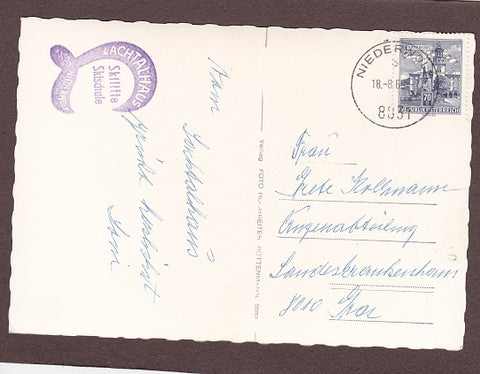 LACHTALHAUS
Skilifte
Skischule
Vom
Lachtalhaus
grüßt herzlichst
Verlag FOTO HOCHREITER, ROTTENMANN, Stmk
NIEDERWÖ
18.-8.6
8831
70
REPUBLIK ÖSTERREICH
Frau
Grete Kollmann
Augenabteilung
Landeskrankenhaus
8010 Graz